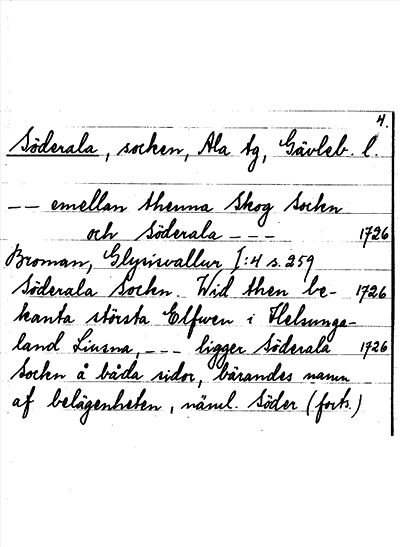 4.
Söderala, socken, Ala tg, Gävleb. l.
-- emellan thenna Skog Sockn
och Söderala --- 1726
Broman, Glysisvallur I:4 s. 259
Söderala Sockn. Wid then be- 1726
kanta största Elfwen i Helsinge-
land Liusna, --- ligger Söderala 1726
Sockn å båda sidor, bärandes namn
af belägenheten, näml. Söder (forts.)